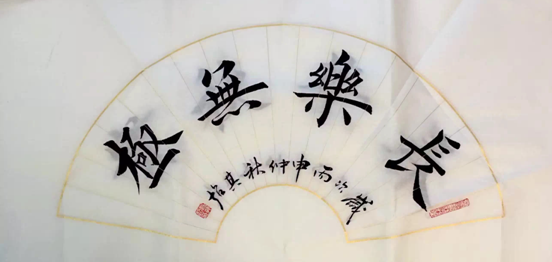 長樂無極
歲次丙申仲秋其指